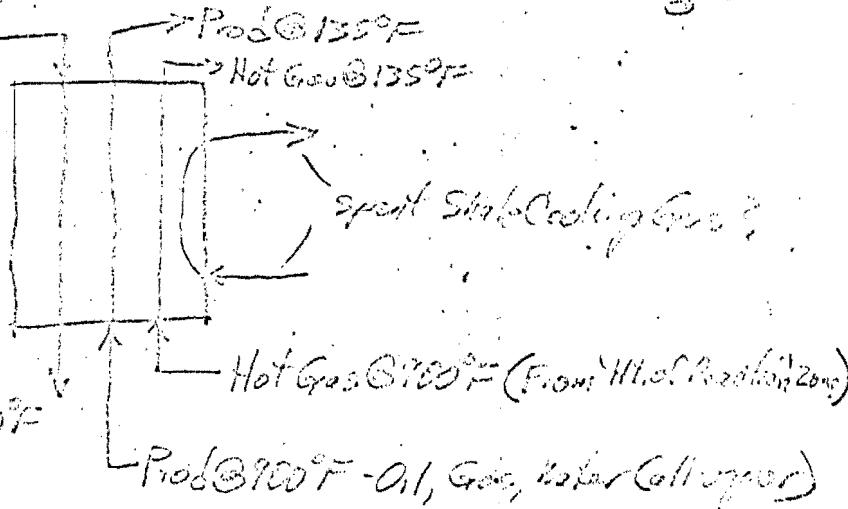 Prod@135°F
Hot Gas@135°F
Spent Shale Cooling Gas?
Hot Gas@900°F (From Ht. of Reaction Zone)
0°F
Prod@900°F - Oil, Gas, Water (all vapor)